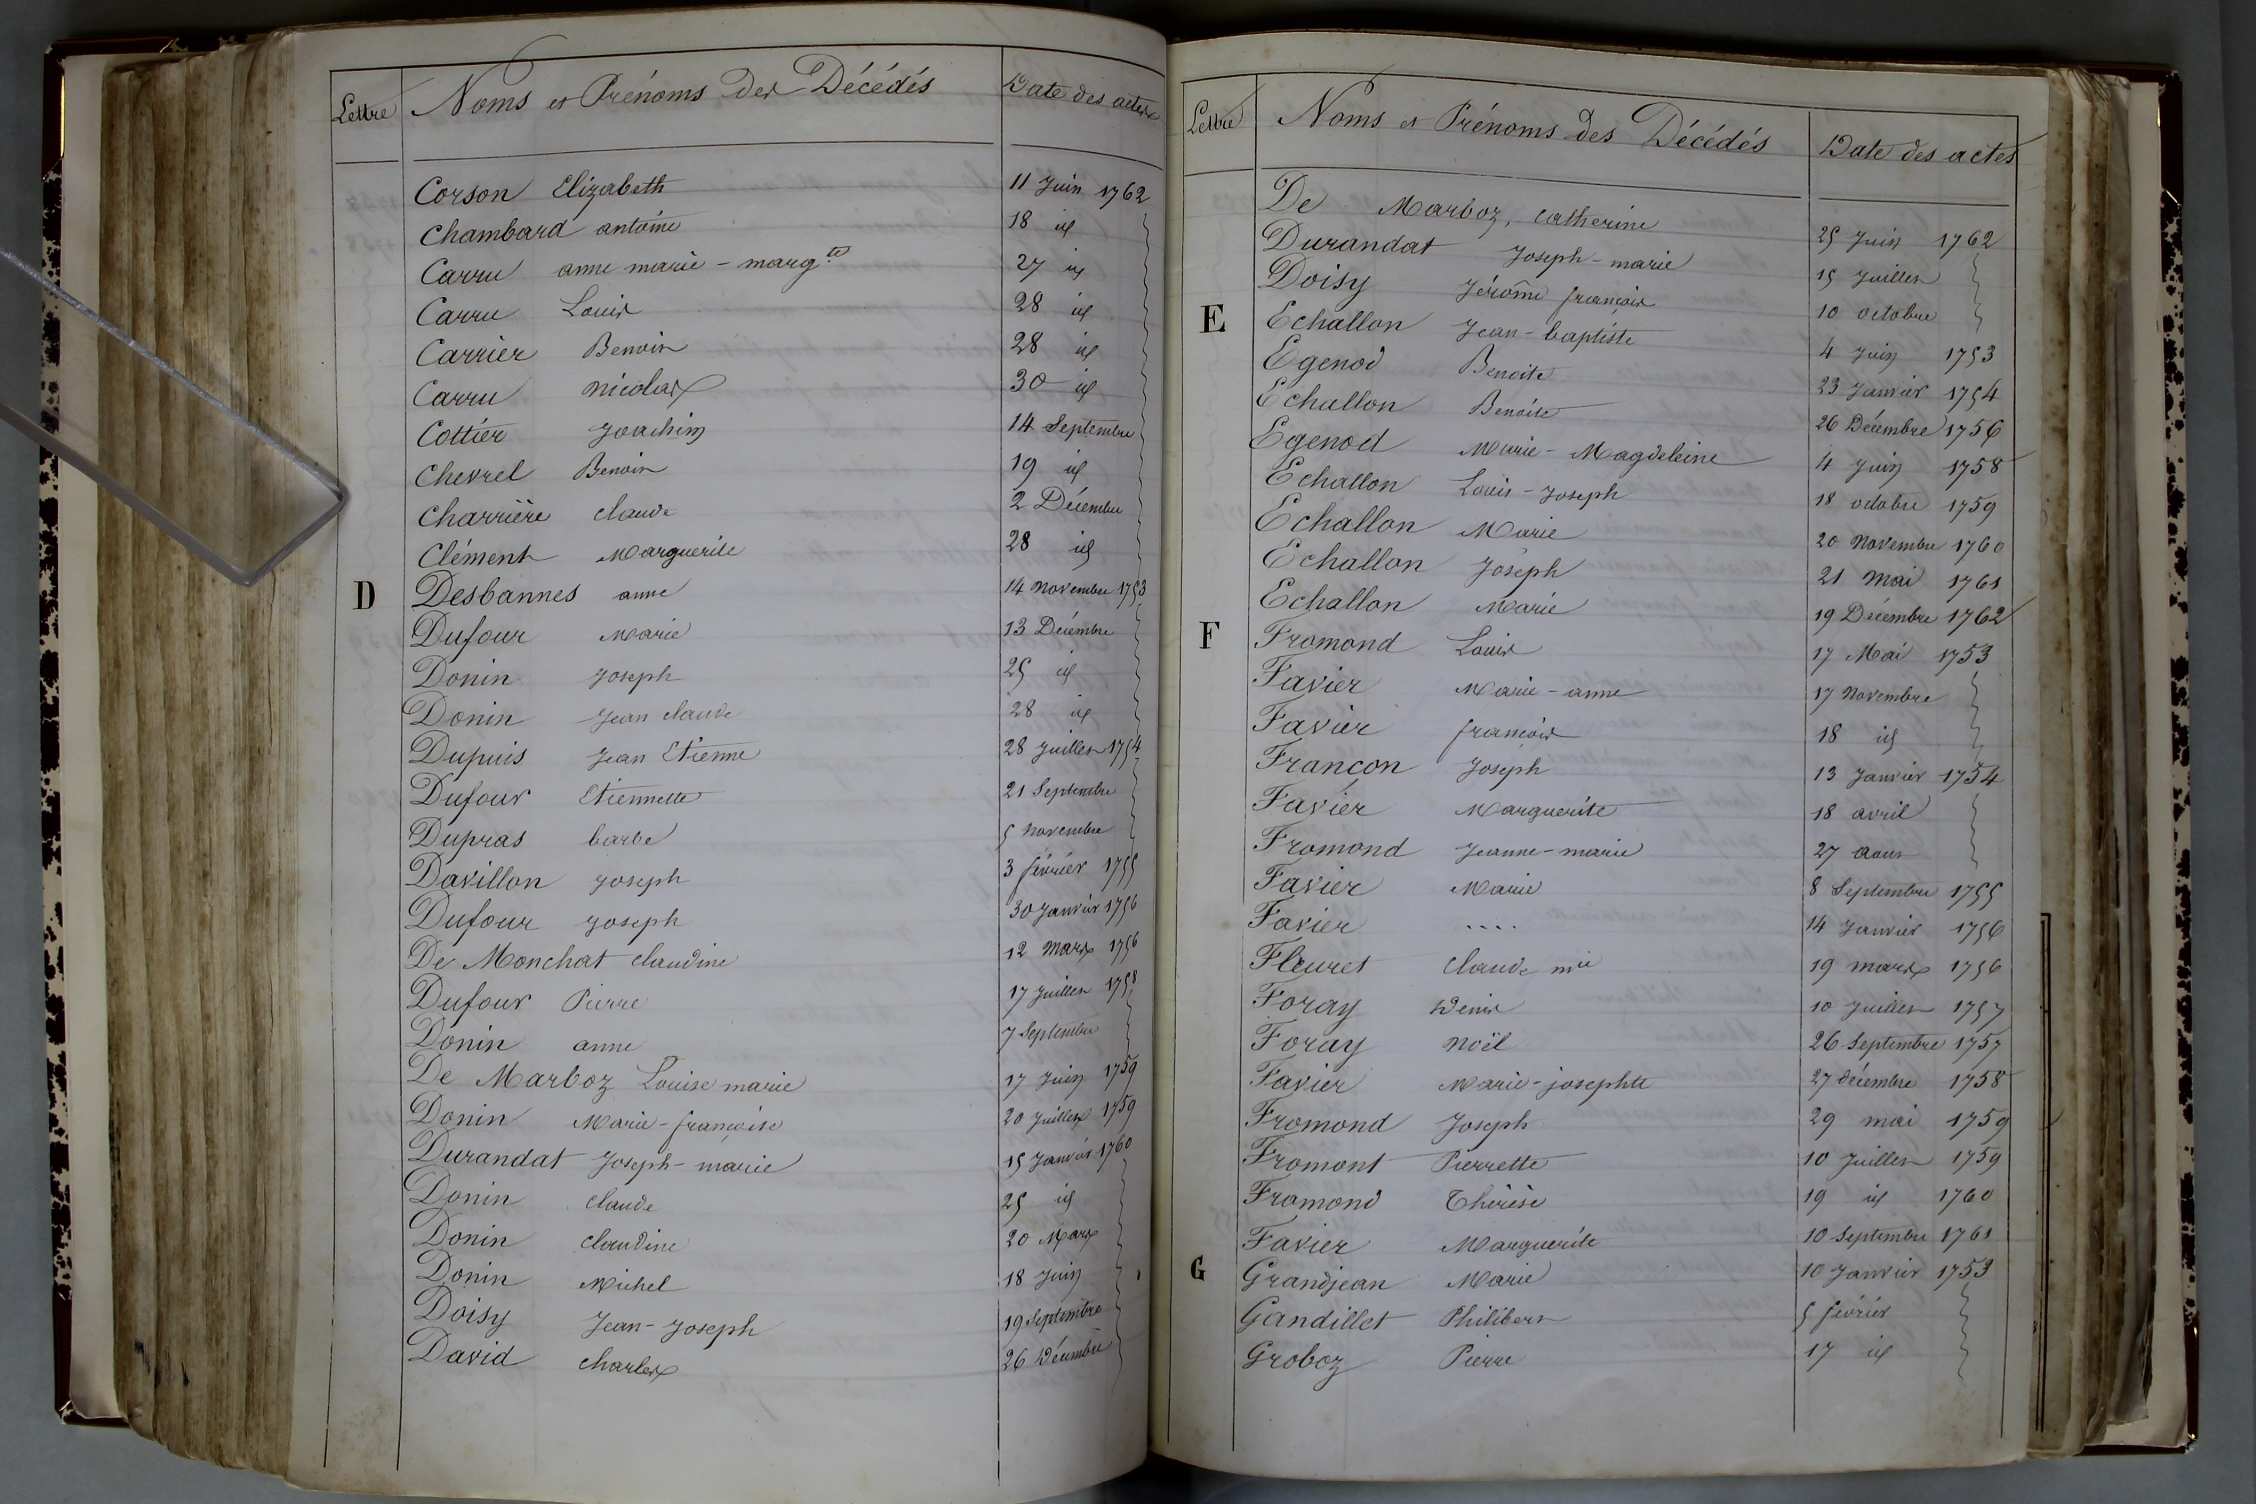 Lettre Noms et Prénoms des Décédés Date des actes
Corson Elizabeth 11 Juin 1762
Chambard antoine 18 id
Carru anne marie - marg.te 27 id
Carru Louis 28 id
Carrier Benoit 28 id
Carru nicolas 30 id
Cottier Joachim 14 Septembre
Chevrel Benoit 19 id
Charrière claude 2 Décembre
Clément Marguerite 28 id
D Desbannes anne 14 Novembre 1753
Dufour Marie 13 Décembre
Donin Joseph 25 id
Donin Jean claude 28 id
Dupuis Jean Etienne 28 Juillet 1754
Dufour Etiennette 21 Septembre
Dupras barbe 5 Novembre
Davillon Joseph 3 février 1755
Dufour Joseph 30 Janvier 1756
De Monchat claudine 12 Mars 1756
Dufour Pierre 17 Juillet 1758
Donin anne 7 Septembre
De Marboz Louise marie 17 Juin 1759
Donin Marie-françoise 20 Juillet 1759
Durandat Joseph-marie 15 Janvier 1760
Donin claude 25 id
Donin claudine 20 Mars
Donin Michel 18 Juin
Doisy Jean-Joseph 19 Septembre
David charles 26 Décembre
Lettre Noms et Prénoms des Décédés Date des actes
De Marboz, catherine 25 Juin 1762
Durandat Joseph-marie 15 Juillet
Doisy Jérome françois 10 octobre
E Echallon Jean-baptiste 4 Juin 1753
Egenod Benoite 23 Janvier 1754
Echallon Benoite 26 Décembre 1756
Egenod Marie-Magdeleine 4 Juin 1758
Echallon Louis-Joseph 18 octobre 1759
Echallon Marie 20 Novembre 1760
Echallon Joseph 21 Mai 1761
Echallon Marie 19 Décembre 1762
F Fromond Louis 17 Mai 1753
Favier Marie-anne 17 Novembre
Favier françois 18 id
Françon Joseph 13 Janvier 1754
Favier Marguerite 18 avril
Fromond Jeanne-marie 27 aout
Favier Marie 8 Septembre 1755
Favier .... 14 Janvier 1756
Fleuret claude mie 19 mars 1756
Foray Denis 10 Juillet 1757
Foray Noël 26 Septembre 1757
Favier Marie-josephte 27 décembre 1758
Fromond Joseph 29 mai 1759
Fromont Pierrette 10 Juillet 1759
Fromond Thérèse 19 id 1760
Favier Marguerite 10 Septembre 1761
G Grandjean Marie 10 Janvier 1753
Gandillet Philibert 5 février
Groboz Pierre 17 id